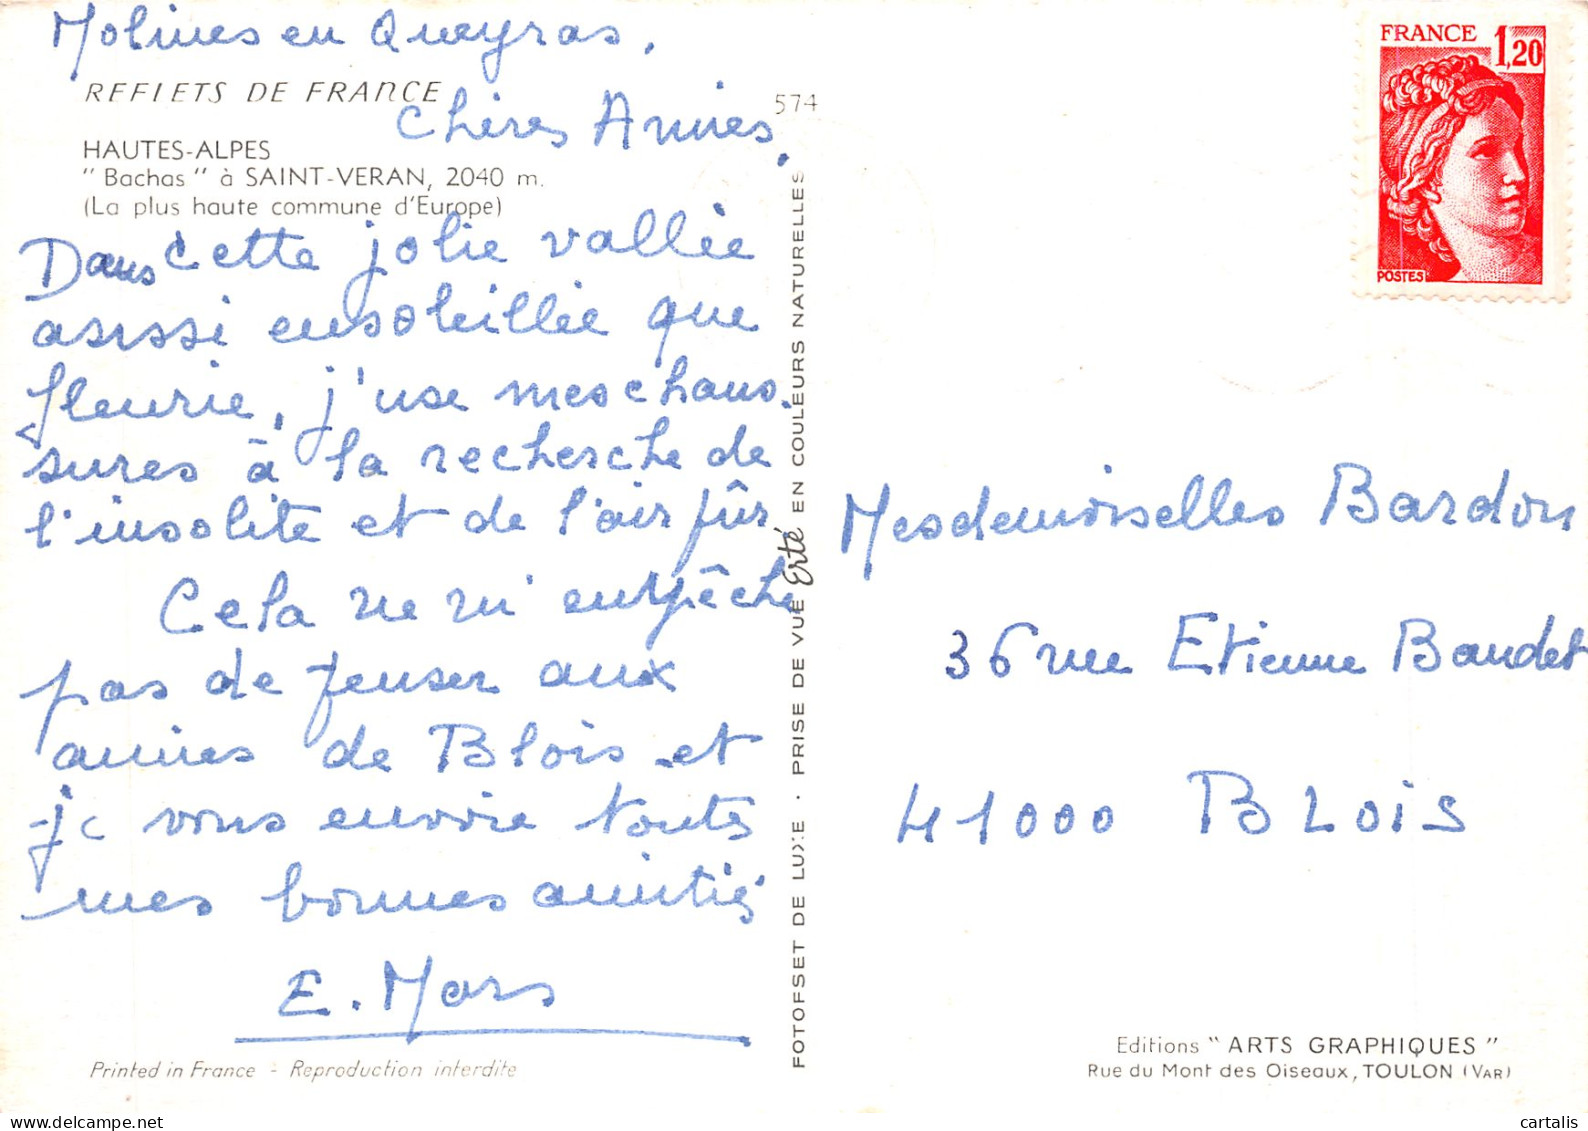 Molines en Queyras.
REFLETS DE FRANCE
Chères Amies,
574
HAUTES-ALPES
" Bachas " à SAINT-VERAN, 2040 m.
(La plus haute commune d'Europe)
Dans cette jolie vallée
aussi ensoleillée que
fleurie, j'use mes chaus-
sures à la recherche de
l'insolite et de l'air pûr
Cela ne m'empêche
pas de penser aux
amies de Blois et
je vous envoie toutes
mes bonnes amitiés
E. Mars
Printed in France - Reproduction interdite
FOTOFSET DE LUXE · PRISE DE VUE Erté EN COULEURS NATURELLES
FRANCE 1,20
POSTES
Mesdemoiselles Bardon
36 rue Etienne Baudet
41000 BLOIS
Editions " ARTS GRAPHIQUES "
Rue du Mont des Oiseaux, TOULON (VAR)
cartalis